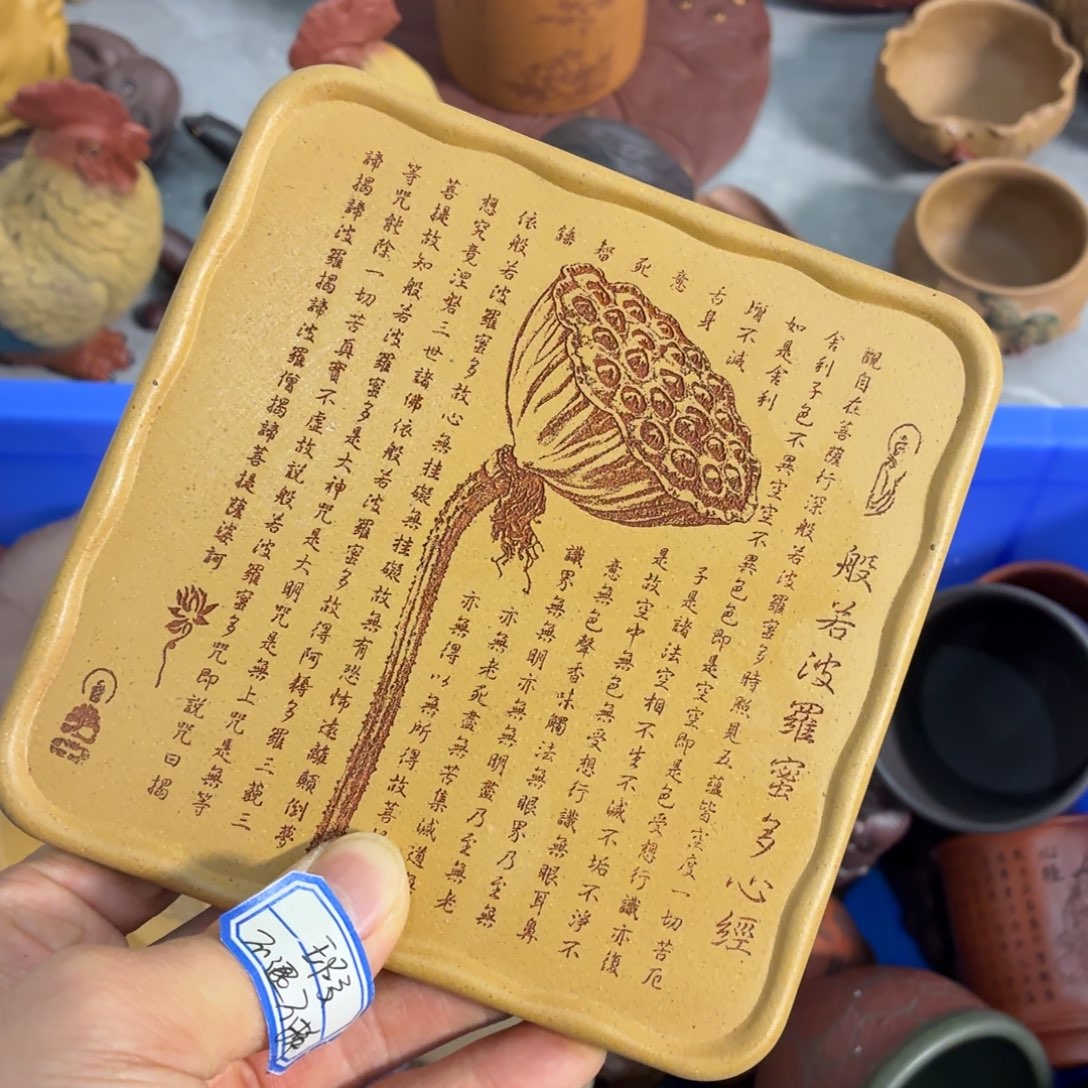 般若波羅蜜多心經
觀自在菩薩行深般若波羅蜜多時照見五蘊皆空度一切苦厄
舍利子色不異空空不異色色即是空空即是色受想行識亦復
如是舍利
子是諸法空相不生不滅不垢不淨不
不減
是故空中無色無受想行識無眼耳鼻
舌身
意
意無色聲香味觸法無眼界乃至無
識界無無明亦無無明盡乃至無老
死
亦無老死盡無苦集滅道
智
亦無得以無所得故菩
依般若波羅蜜多故心無挂礙無挂礙故無有恐怖遠離顛倒夢
想究竟涅槃三世諸佛依般若波羅蜜多故得阿耨多羅三藐三
菩提故知般若波羅蜜多是大神咒是大明咒是無上咒是無等
等咒能除一切苦真實不虛故說般若波羅蜜多咒即說咒曰揭
諦揭諦波羅揭諦波羅僧揭諦菩提薩婆訶